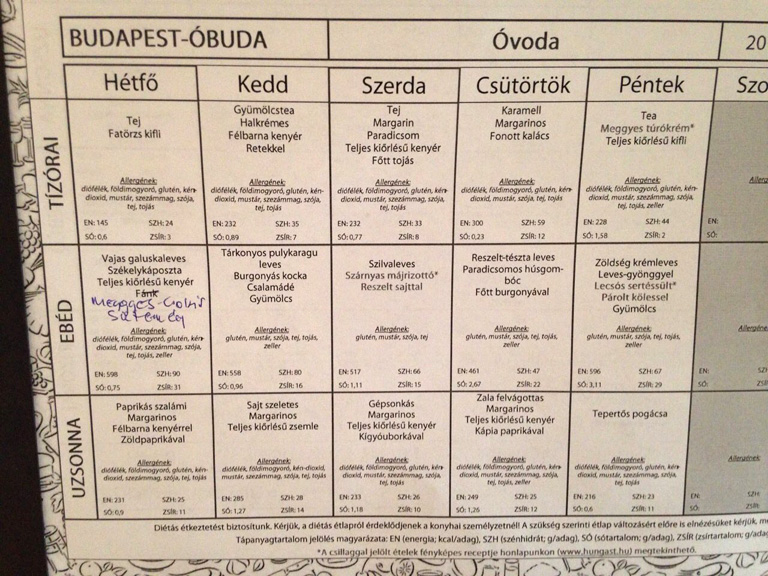 BUDAPEST-ÓBUDA
Óvoda
20
Hétfő
Kedd
Szerda
Csütörtök
Péntek
Szo
TÍZÓRAI
Tej
Fatörzs kifli
Allergének:
diófélék, földimogyoró, glutén, kén-
dioxid, mustár, szezámmag, szója,
tej, tojás
EN: 145
SZH: 24
SÓ: 0,6
ZSÍR: 3
Gyümölcstea
Halkrémes
Félbarna kenyér
Retekkel
Allergének:
diófélék, földimogyoró, glutén, kén-
dioxid, mustár, szezámmag, szója,
tej, tojás
EN: 232
SZH: 35
SÓ: 0,89
ZSÍR: 7
Tej
Margarin
Paradicsom
Teljes kiőrlésű kenyér
Főtt tojás
Allergének:
diófélék, földimogyoró, glutén, kén-
dioxid, mustár, szezámmag, szója,
tej, tojás
EN: 232
SZH: 33
SÓ: 0,77
ZSÍR: 8
Karamell
Margarinos
Fonott kalács
Allergének:
diófélék, földimogyoró, glutén, kén-
dioxid, mustár, szezámmag, szója,
tej, tojás
EN: 300
SZH: 59
SÓ: 0,23
ZSÍR: 12
Tea
Meggyes túrókrém*
Teljes kiőrlésű kifli
Allergének:
diófélék, földimogyoró, glutén, kén-
dioxid, mustár, szezámmag, szója,
tej, tojás, zeller
EN: 228
SZH: 44
SÓ: 1,58
ZSÍR: 2
Allerg
EN:
SÓ:
EBÉD
Vajas galuskaleves
Székelykáposzta
Teljes kiőrlésű kenyér
Fánk
Meggyes-
Sütemény
Allergének:
diófélék, földimogyoró, glutén, kén-
dioxid, mustár, szezámmag, szója,
tej, tojás, zeller
EN: 598
SZH: 90
SÓ: 0,75
ZSÍR: 31
Tárkonyos pulykaragu
leves
Burgonyás kocka
Csalamádé
Gyümölcs
Allergének:
glutén, mustár, szója, tej, tojás,
zeller
EN: 558
SZH: 80
SÓ: 0,96
ZSÍR: 16
Szilvaleves
Szárnyas májrizottó*
Reszelt sajttal
Allergének:
glutén, mustár, szója, tej
EN: 517
SZH: 66
SÓ: 1,11
ZSÍR: 15
Reszelt-tészta leves
Paradicsomos húsgom-
bóc
Főtt burgonyával
Allergének:
glutén, mustár, szója, tej, tojás,
zeller
EN: 461
SZH: 47
SÓ: 2,67
ZSÍR: 22
Zöldség krémleves
Leves-gyönggyel
Lecsós sertéssült*
Párolt kölessel
Gyümölcs
Allergének:
glutén, mustár, szója, tej, tojás,
zeller
EN: 596
SZH: 67
SÓ: 3,11
ZSÍR: 29
Allergé
EN:
SZH
SÓ:
ZSÍ
UZSONNA
Paprikás szalámi
Margarinos
Félbarna kenyérrel
Zöldpaprikával
Allergének:
diófélék, földimogyoró, glutén, kén-
dioxid, mustár, szezámmag, szója,
tej, tojás
EN: 231
SZH: 25
SÓ: 0,9
ZSÍR: 11
Sajt szeletes
Margarinos
Teljes kiőrlésű zsemle
Allergének:
diófélék, glutén, kén-dioxid,
mustár, szezámmag, szója, tej, tojás
EN: 285
SZH: 28
SÓ: 1,27
ZSÍR: 14
Gépsonkás
Margarinos
Teljes kiőrlésű kenyér
Kígyóuborkával
Allergének:
diófélék, földimogyoró, glutén, kén-
dioxid, mustár, szezámmag, szója,
tej, tojás
EN: 233
SZH: 26
SÓ: 1,18
ZSÍR: 10
Zala felvágottas
Margarinos
Teljes kiőrlésű kenyér
Kápia paprikával
Allergének:
diófélék, földimogyoró, glutén, kén-
dioxid, mustár, szezámmag, szója,
tej, tojás
EN: 249
SZH: 25
SÓ: 1,26
ZSÍR: 12
Tepertős pogácsa
Allergének:
diófélék, földimogyoró, glutén, kén-
dioxid, mustár, szezámmag, szója,
tej, tojás
EN: 216
SZH: 23
SÓ: 0,6
ZSÍR: 11
Allergének
EN:
SZH
SÓ:
ZSÍR
Diétás étkeztetést biztosítunk. Kérjük, a diétás étlapról érdeklődjenek a konyhai személyzetnél! A szükség szerinti étlap változásért előre is elnézésüket kérjük, m
Tápanyagtartalom jelölés magyarázata: EN (energia; kcal/adag), SZH (szénhidrát; g/adag), SÓ (sótartalom; g/adag), ZSÍR (zsírtartalom; g/adag
*A csillaggal jelölt ételek fényképes receptje honlapunkon (www.hungast.hu) megtekinthető.